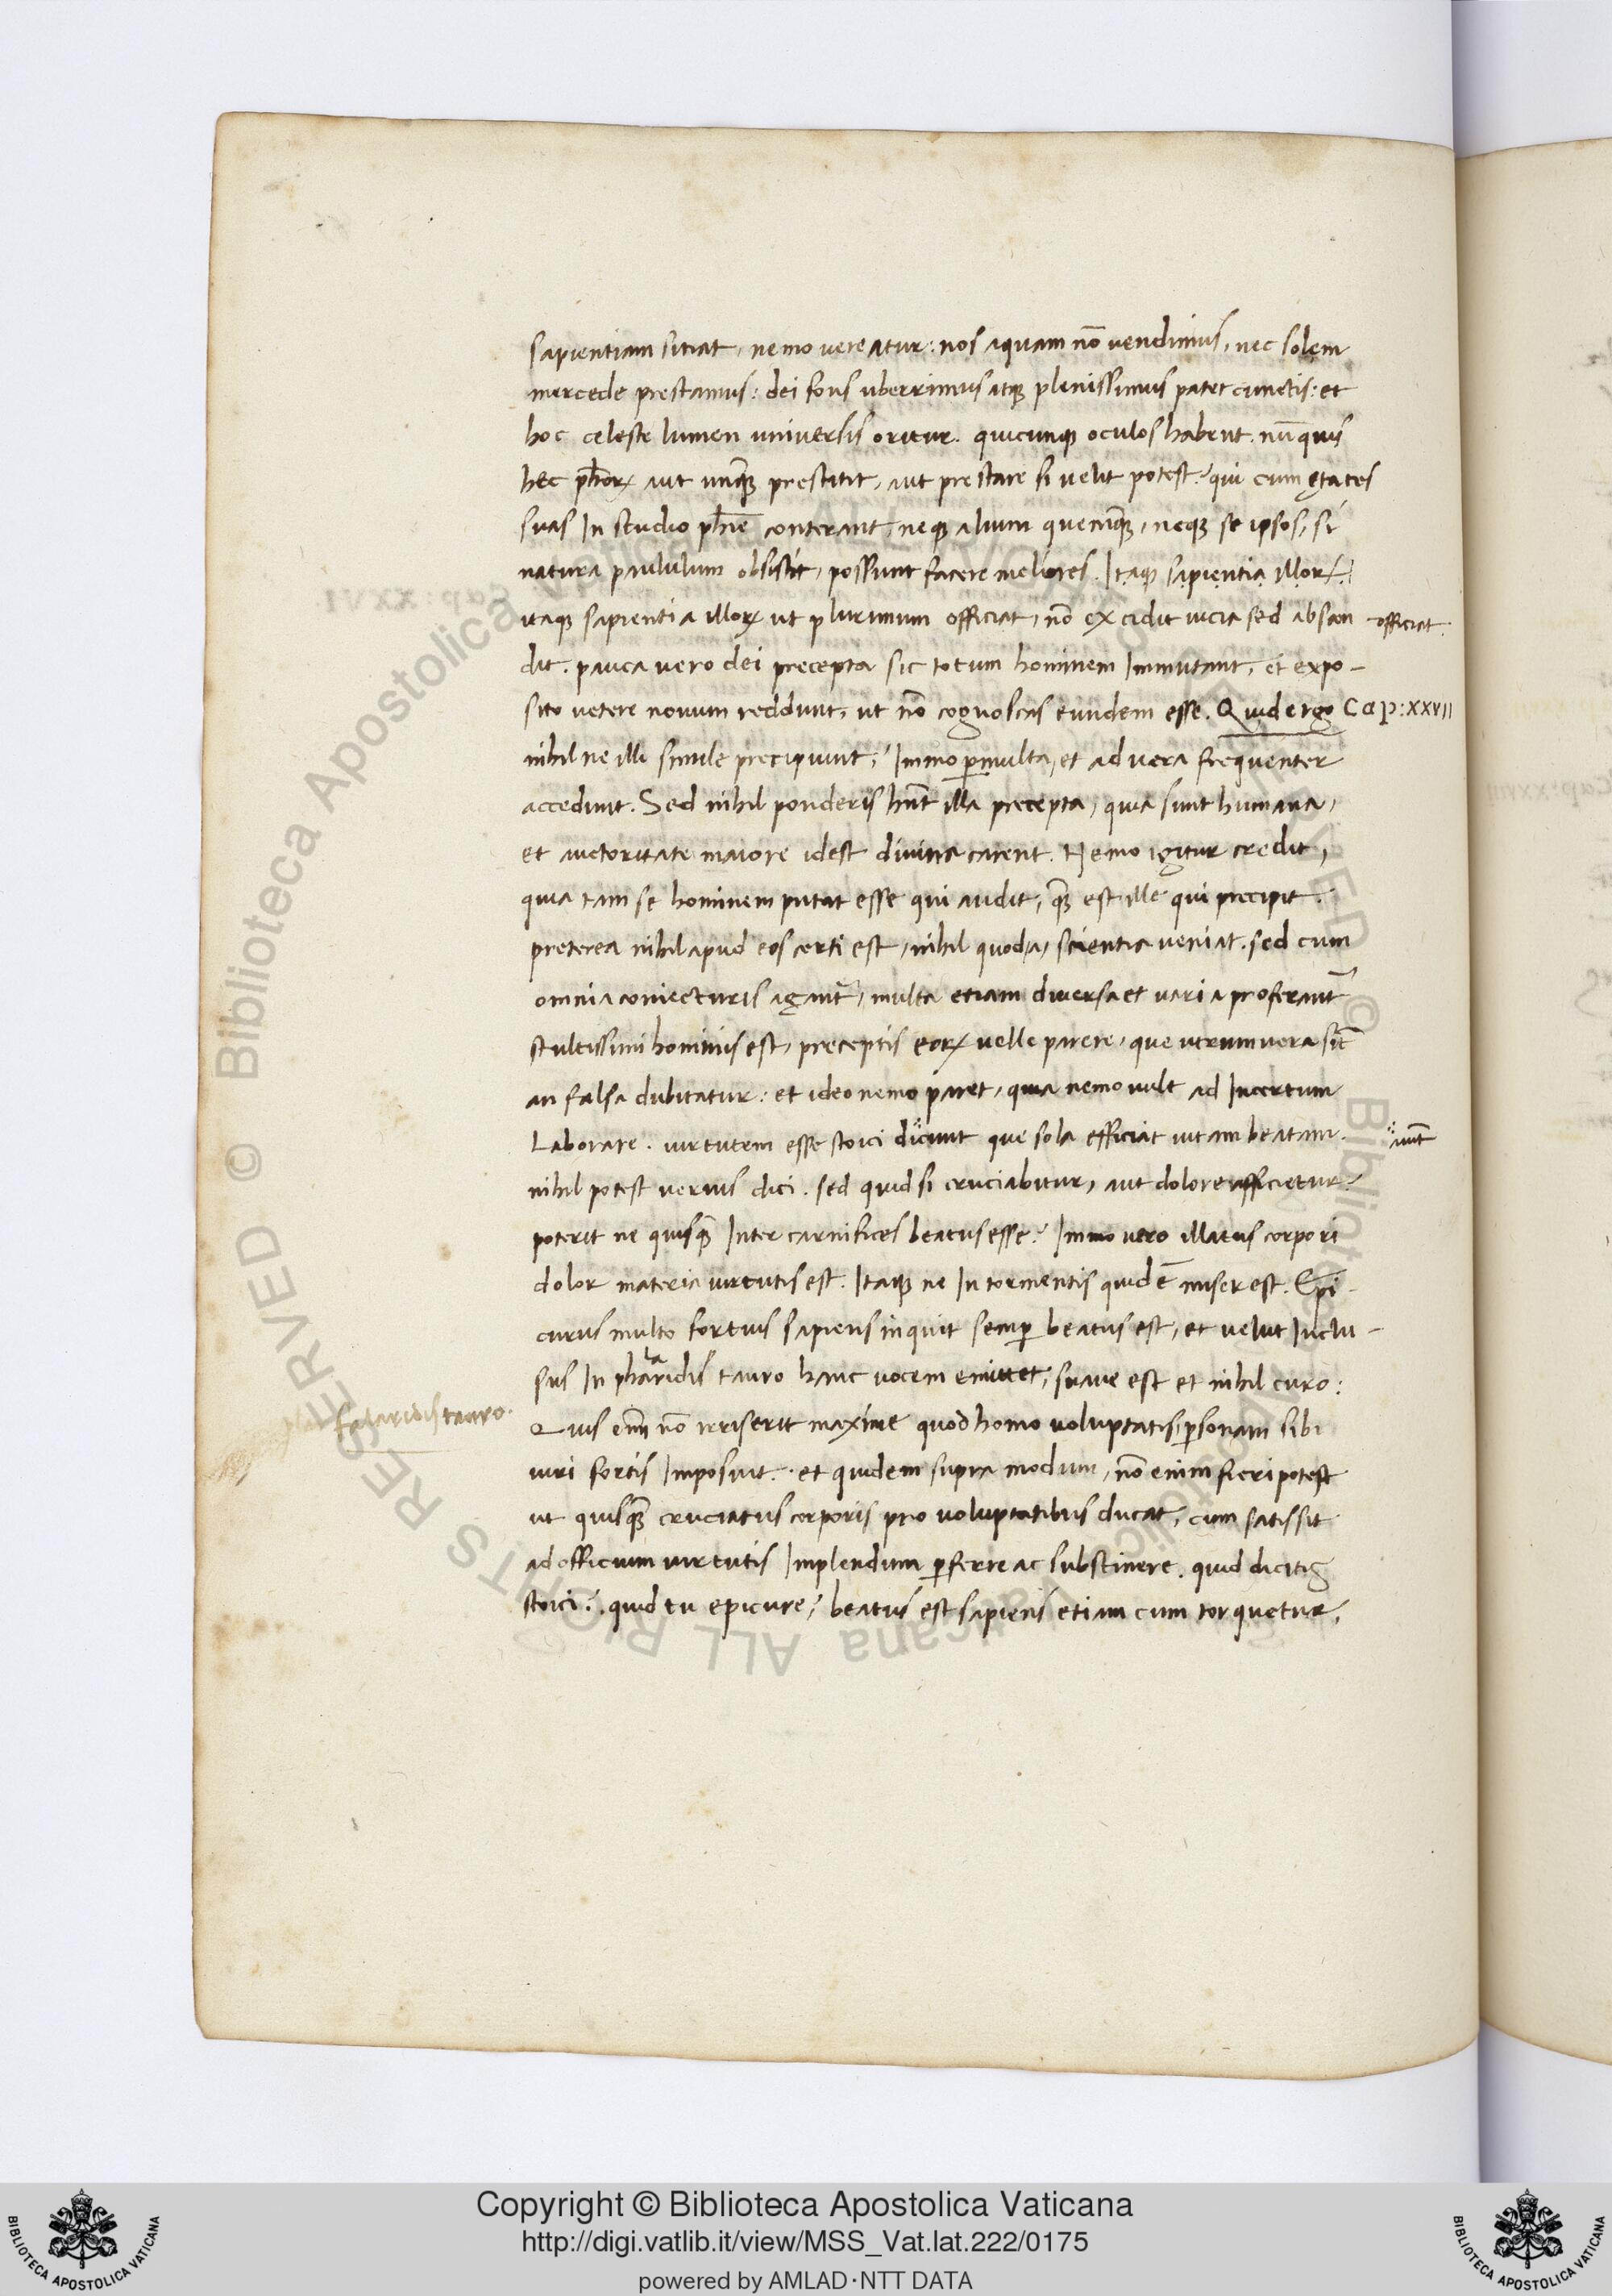 sapientiam sitiat, nemo vereatur: nos aquam nō vendimus, nec solem
mercede prestamus: dei fons uberrimus atqꝫ plenissimus patet cunctis: et
hoc celeste lumen universis oritur. quicunqꝫ oculos habent. nū quis
hec ph̄orꝝ aut unq̄ꝫ prestitit, aut prestare si velit potest? qui cum ętates
suas In studio ph̄ie conterant, neqꝫ alium quemq̄ꝫ, neqꝫ se ipsos, si
natura paululum obsistit, possunt facere meliores. Itaqꝫ sapientia illorꝝ
itaqꝫ sapientia illorꝝ ut plurimum officiat, nō excidit vicia sed abscon
officiat.
dit. pauca vero dei precepta sic totum hominem Immutant, et expo-
sito vetere novum reddunt, ut nō cognoscas eundem esse. Quid ergo
Cap: xxvii
nihil ne illi simile precipiunt? Immo ꝑmulta, et ad vera frequenter
accedunt. Sed nihil ponderis hn̄t illa precepta, quia sunt humana,
et auctoritate maiore idest divina carent. Nemo igitur credit,
quia tam se hominem putat esse qui audit, q̄ꝫ est ille qui precipit.
preterea nihil apud eos certi est, nihil quod a, scientia veniat. sed cum
omnia coniecturis agant᷑, multa etiam diversa et varia proferant᷑
stultissimi hominis est, preceptis eorꝝ velle parere, que utrum vera sīt
an falsa dubitatur: et ideo nemo paret, quia nemo vult ad Incertum
Laborare. virtutem esse stoici dicunt que sola efficiat vitam beatam.
aiūt
nihil potest verius dici. sed quid si cruciabitur, aut dolore afficietur?
poterit ne quisq̄ꝫ Inter carnifices beatus esse? Immo vero illatus corpori
dolor materia virtutis est. Itaqꝫ ne In tormentis quidē miser est. Epi-
curus multo fortius sapiens inquit semꝑ beatus est, et velut Inclu-
sus In phalaridis tauro hanc vocem emittet, suave est et nihil curo:
falaridis tauro.
Quis eni͞ nō irriserit maxime quod homo voluptatis, ꝑsonam sibi
viri fortis Imposuit. et quidem supra modum, nō enim fieri potest
ut quisq̄ꝫ cruciatus corporis pro voluptatibus ducat, cum satis sit
ad officium virtutis Implendum ꝑferre ac substinere. quid dicitis
stoici? quid tu epicure? beatus est sapiens etiam cum torquetur,
Copyright © Biblioteca Apostolica Vaticana
http://digi.vatlib.it/view/MSS_Vat.lat.222/0175
powered by AMLAD·NTT DATA
BIBLIOTECA APOSTOLICA VATICANA
BIBLIOTECA APOSTOLICA VATICANA